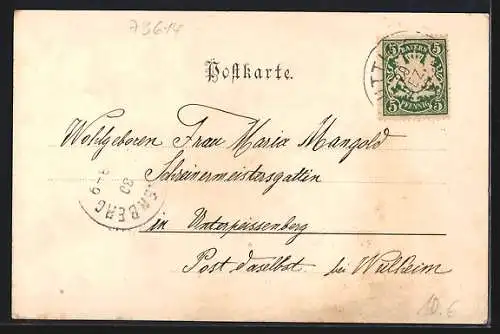 73614
Postkarte.
BAYERN
5 5
5 PFENNIG 5
Wohlgeboren Frau Maria Mangold
Schreinermeistersgattin
in Unterpeissenberg
Post daselbst bei Weilheim
ENBERG
30
8-9
10.6